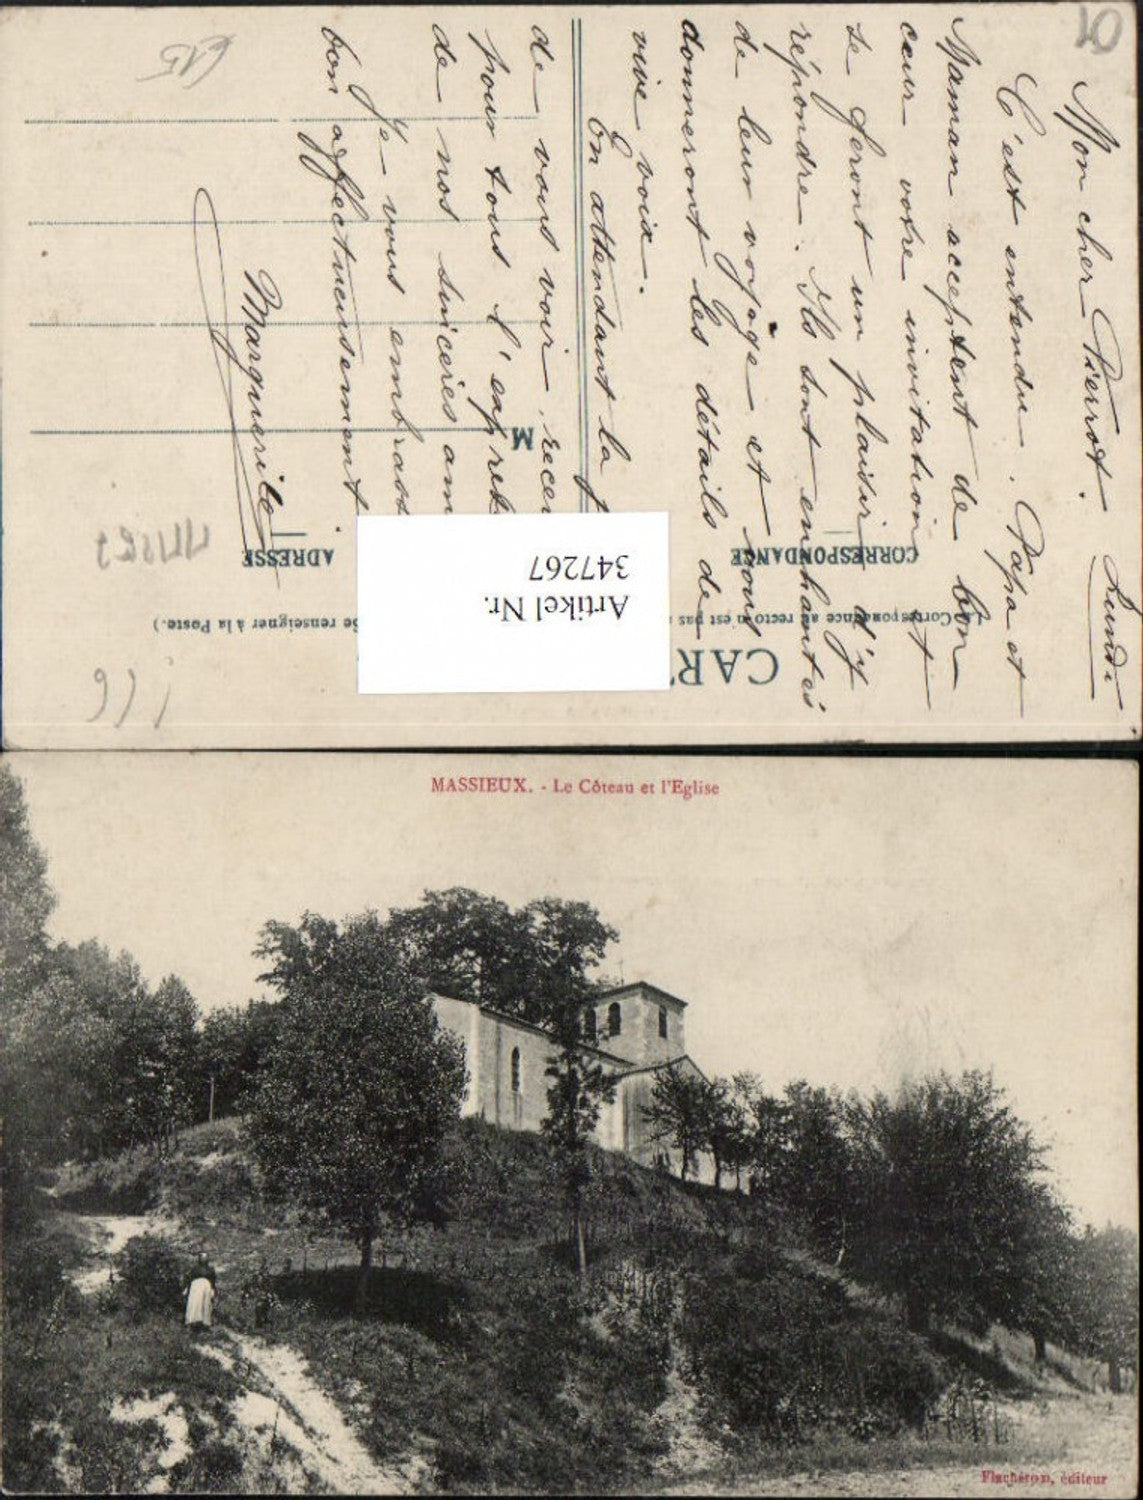 Lundi
Mon cher Pierrot.
C'est entendu. Papa et
Maman acceptent de bon
cœur votre invitation et
se feront un plaisir d'y
répondre. Ils sont enchantés
de leur voyage et vous
donneront les détails de
vive voix.
En attendant la
de vous voir, recev
pour tous l'exp
de nos sincères am
Je vous embrass
bon affectueusement.
Marguerite
CAR
La Correspondance au recto n'est pas
Se renseigner à la Poste.)
CORRESPONDANCE
ADRESSE
M
Artikel Nr.
347267
01
MASSIEUX. - Le Côteau et l'Eglise
Flachéron, éditeur